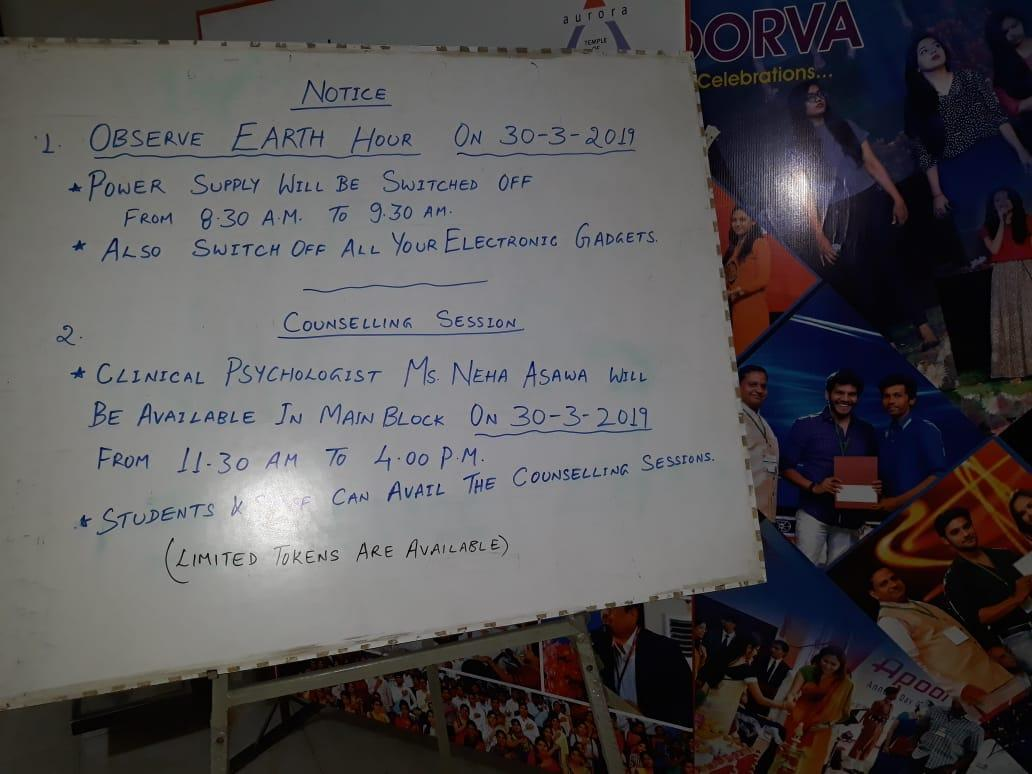 aurora
TEMPLE
OF
OORVA
Celebrations...
NOTICE
1. OBSERVE EARTH HOUR ON 30-3-2019
* POWER SUPPLY WILL BE SWITCHED OFF
FROM 8.30 A.M. TO 9.30 AM.
* ALSO SWITCH OFF ALL YOUR ELECTRONIC GADGETS.
2. COUNSELLING SESSION
* CLINICAL PSYCHOLOGIST MS. NEHA ASAWA WILL
BE AVAILABLE IN MAIN BLOCK ON 30-3-2019
FROM 11.30 AM TO 4.00 P.M.
* STUDENTS & CAN AVAIL THE COUNSELLING SESSIONS.
(LIMITED TOKENS ARE AVAILABLE)
Apoo